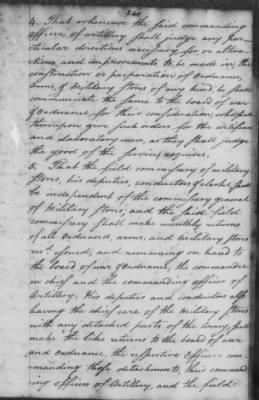 4. That whenever the said commanding
officer of artillery shall judge any par-
ticular directions necessary for, or altera-
tions and improvements to be made in, the
construction or preparation of Ordnance,
arms, or Military stores of any kind, he shall
communicate the same to the board of war
& Ordnance, for their consideration, who shall
thereupon give such orders for the artificers
and elaboratory men, as they shall judge
the good of the service requires.
5. That the field commissary of military
stores, his deputies, conductors & clerks, shall
be independent of the commissary general
of Military stores; and the said field
commissary shall make monthly returns
of all Ordnance, arms, and Military stores
rec'd, issued, and remaining on hand to
the board of war & Ordnance, the commander
in chief and the commanding officer of
Artillery. His deputies and conductors also
having the chief care of the Military stores
with any detached parts of the Army, shall
make the like returns to the board of war
and ordnance, the respective Officers com-
manding those detachments, their command-
ing officers of Artillery, and the field